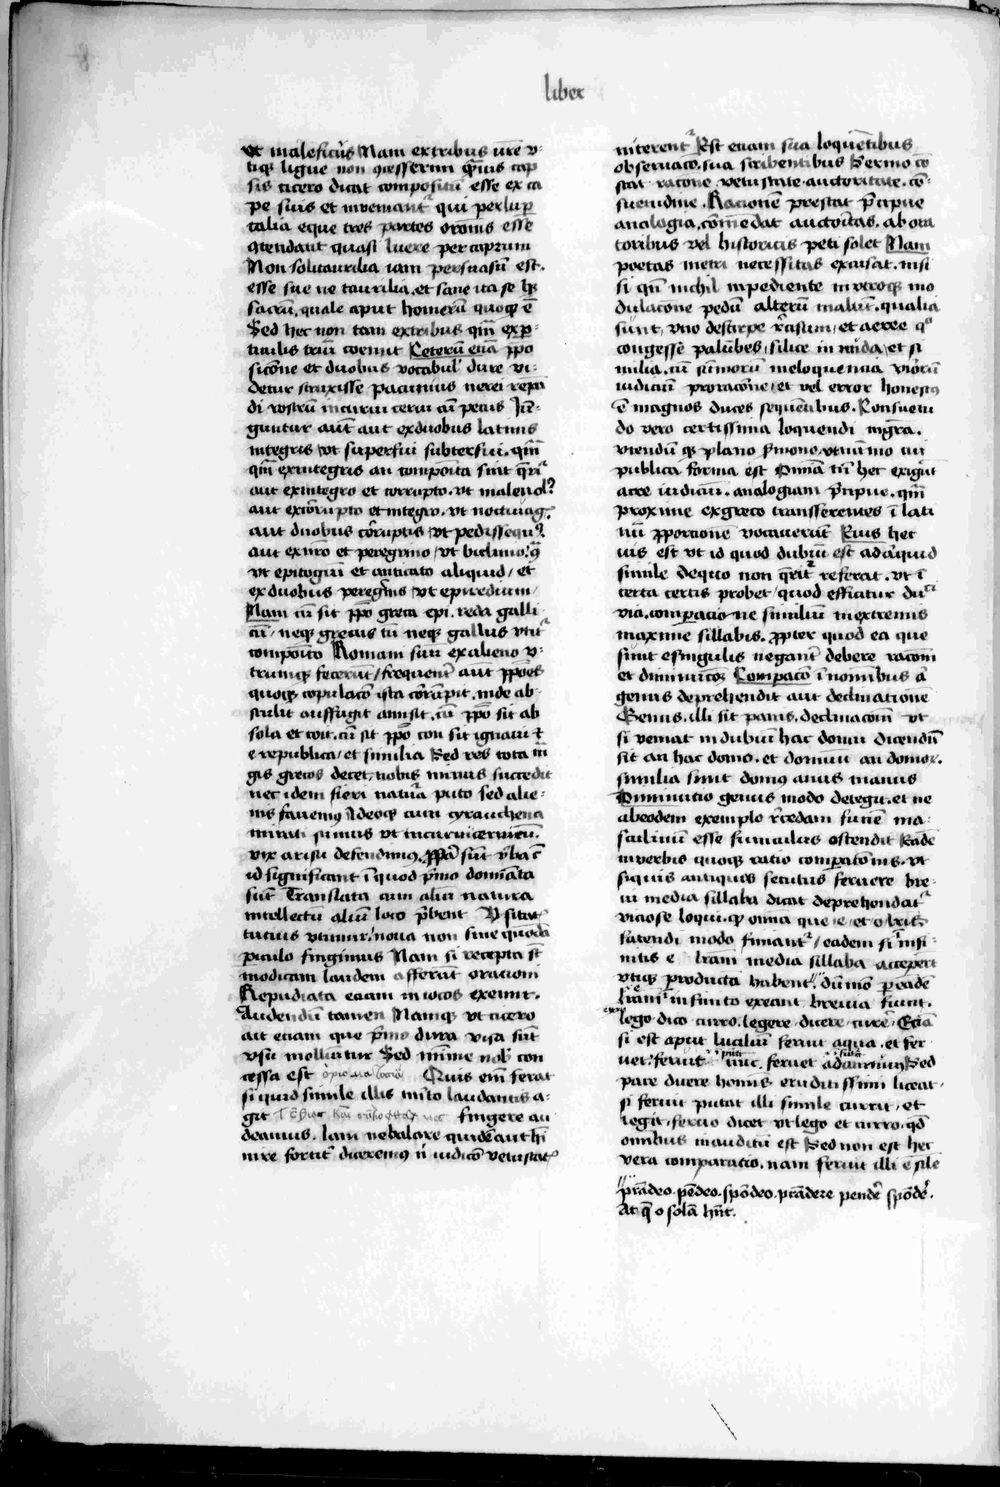 liber
Ut maleficus Nam ex tribus nr̄e v-
tiq̨ ligue non ꝯcesserim q̄uis cap
sis cicero dicat compositū esse ex ca
pe suis et inveniant᷑ qui per lup̱
calia eque tres partes oronis esse
ꝯtendant quasi luere per caprum
Non solitaurilia iam persuasū est.
esse sue ue taurilia. et sane ita se hꝫ
sacrū, quale aput homerū quoq̨ ē
Sed hec non tam ex tribus q̄m ex p̱-
ticulis triū coeunt Ceterū etiā p̱po
sicōne et duobus vocabul᷑ dure vi-
detur struxisse pacuuius nerei repā
di rostrū incurui cerui cū pecus Iū-
guntur aut̄ aut ex duobus latinis
integris vt superfui subterfui. q̄m̄
q̄m̄ ex integris an compoīta sint q̄ri᷑
aut ex integro et corrupto. vt maleuol᷑
aut ex cōrupto et integro. vt noctiuag᷑
aut duobus cōrruptis vt pedissequ᷑
aut ex nr̄o et peregrino vt biclinio ꝫ
vt epitogiū et anticato aliquid, et
ex duobus peregrīis vt epiredium
Nam cū sit p̱po greca epi. reda galli
cū, neq̨ grecus tn̄ neq̨ gallus vtit᷑
compoīto Romam suū ex alieno v-
trumq̨ fecerūt, frequent᷑ aut̄ p̱poēs
quoq̨ copulacō ista corrūpit, inde ab-
stulit auffugit amisit. cū p̱po sit ab
sola et coit. cū sit p̱po con sic ignaui ⁊
e republica, et similia Sed res tota m̄
gis grecos decet, nobis minus succedit
nec idem fieri natura puto sed alie-
nis fauemq̨ Ideoq̨ cum cyrauchena
mirati sumus vt incuruicervicū.
vix a risu defendimq̨. p̱pā sūt v̄ba c̄
id significant ī quod p̄mo dōmīata
sūt Translata cum aliū natura
intellectū aliū loco p̄bent Vsitat᷑
tutius vtimur. noua non sine quodā
p̱iculo fingimus Nam si recepta st̄
modicam laudem afferūt oracioni
Repudiata etiam in iocos exeunt.
Audendū tamen Namq̨ vt cicero
ait etiam que p̄mo dura visa sūt
vsu molliūtur Sed mīme nob᷑ con
cessa est Quis em̄ ferat
si quid simile illis mīto laudantis a-
git fingere au
deamus. Iam ne balare quidē aut hī
nire fortit᷑ diceremq̨ n̄ iudicō vetustat᷑
niterent᷑ Est etiam sua loquētibus
obseruacō, sua scribentibus Sermo cō
stat racone vetustate auctoritate. cō-
suetudine. Racionē prestat p̄cipue
analogia, cōmēdat auctoritas. ab ora
toribus vel historicis peti solet Nam
poetas metri necessitas excusat. nisi
si qn̄ nichil inpediente in vtroq̨ mo
dulacōne pedū alterū malūt. qualia
sunt, vno de stirpe recisum, et aeree qo
congesse palūbes, silice in nuda, et si
milia. cū sūmorū in eloquentia virorū
iudiciū pro racōne, et vel error honestꝯ
ē magnos duces sequētibus. Consuetu
do vero certissima loquendi mgr̄a.
vtendū q̨ plano s̄mone, vt nūmo cui
publica forma est Omīa tn̄ hec exigūt
acre iudiciū. analogiam p̄cipue. q̄m̄
proxime ex greco transferentes ī lati
nū p̱porcionē vocauerūt Eius hec
uis est vt id quod dubiū est ad aliquid
simile de quo non q̄rit᷑ referat. vt ī
certa certis probet, quod efficiatur du
via. comparacio ne similiū in extremis
maxime sillabis. p̱pter quod ea que
sunt e singulis negant᷑ debere racom̄
et diminutōꝫ Comparacō ī nomibus a᷑
genus deprehendit aut declinationē
Genus. illi sit panis. declinacom̄ vt
si veniat in dubiū hac domu dicendū
sit an hac domo. et domuū an domor᷑.
similia sunt domus anus manus
Diminutio genus modo detegit. et ne
ab eodem exemplo r̄cedam funē ma-
sculinū esse funiculus ostendit Eadē
in verbis quoq̨ ratio comparacōis. vt
si quis antiquis secutus feruere bre-
ui media sillaba dicat deprehendat᷑
viciose loqui. q̨ omīa que e, et o brīt᷑
fatendi modo finiant᷑, eadem si ī infi-
nitis e lr̄am media sillaba acceperūt
vtiq̨ producta habent᷑. dū mō p̱ eadē
lr̄am in finito exeant brevia fiunt.
lego dico curro. legere dicere currē᷑ Etiā
si est aput luciliū feruit aqua. et fer
uet. feruit nūc. feruet ad annū Sed
pace dicere homīs eruditissimi liceat.
si feruit putat illi simile currit, et
legit. feruo dicet vt lego et curro. qd̄
omībus inauditū est Sed non est hec
vera comparatio. nam feruit illi ē sīle
prādeo. pēdeo. spōdeo. prādere pendē᷑ spōdē᷑.
At q̄ o solā hn̄t.